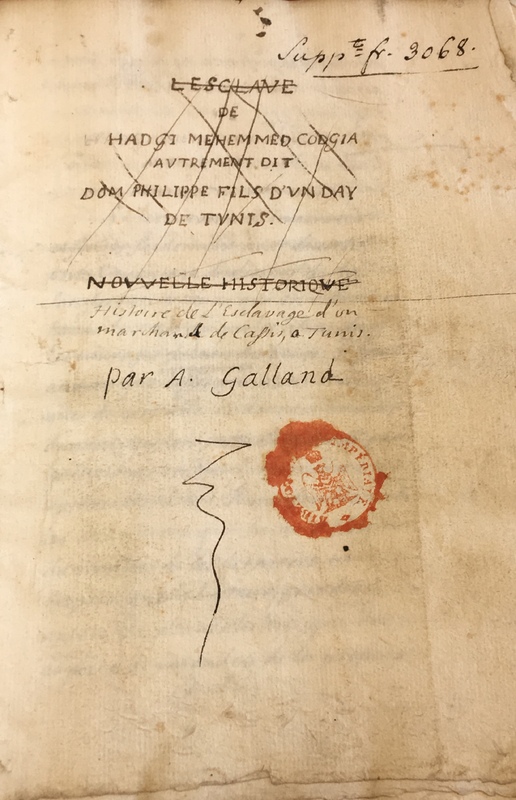 Supp^t fr. 3068.
LESCLAVE
DE
HADGI MEHEMMED CODGIA
AVTREMENT DIT
DOM PHILIPPE FILS D'VN DAY
DE TVNIS.
NOVVELLE HISTORIQVE
Histoire de L'Esclavage d'un
marchand de Cassis, a Tunis.
par A. Galland